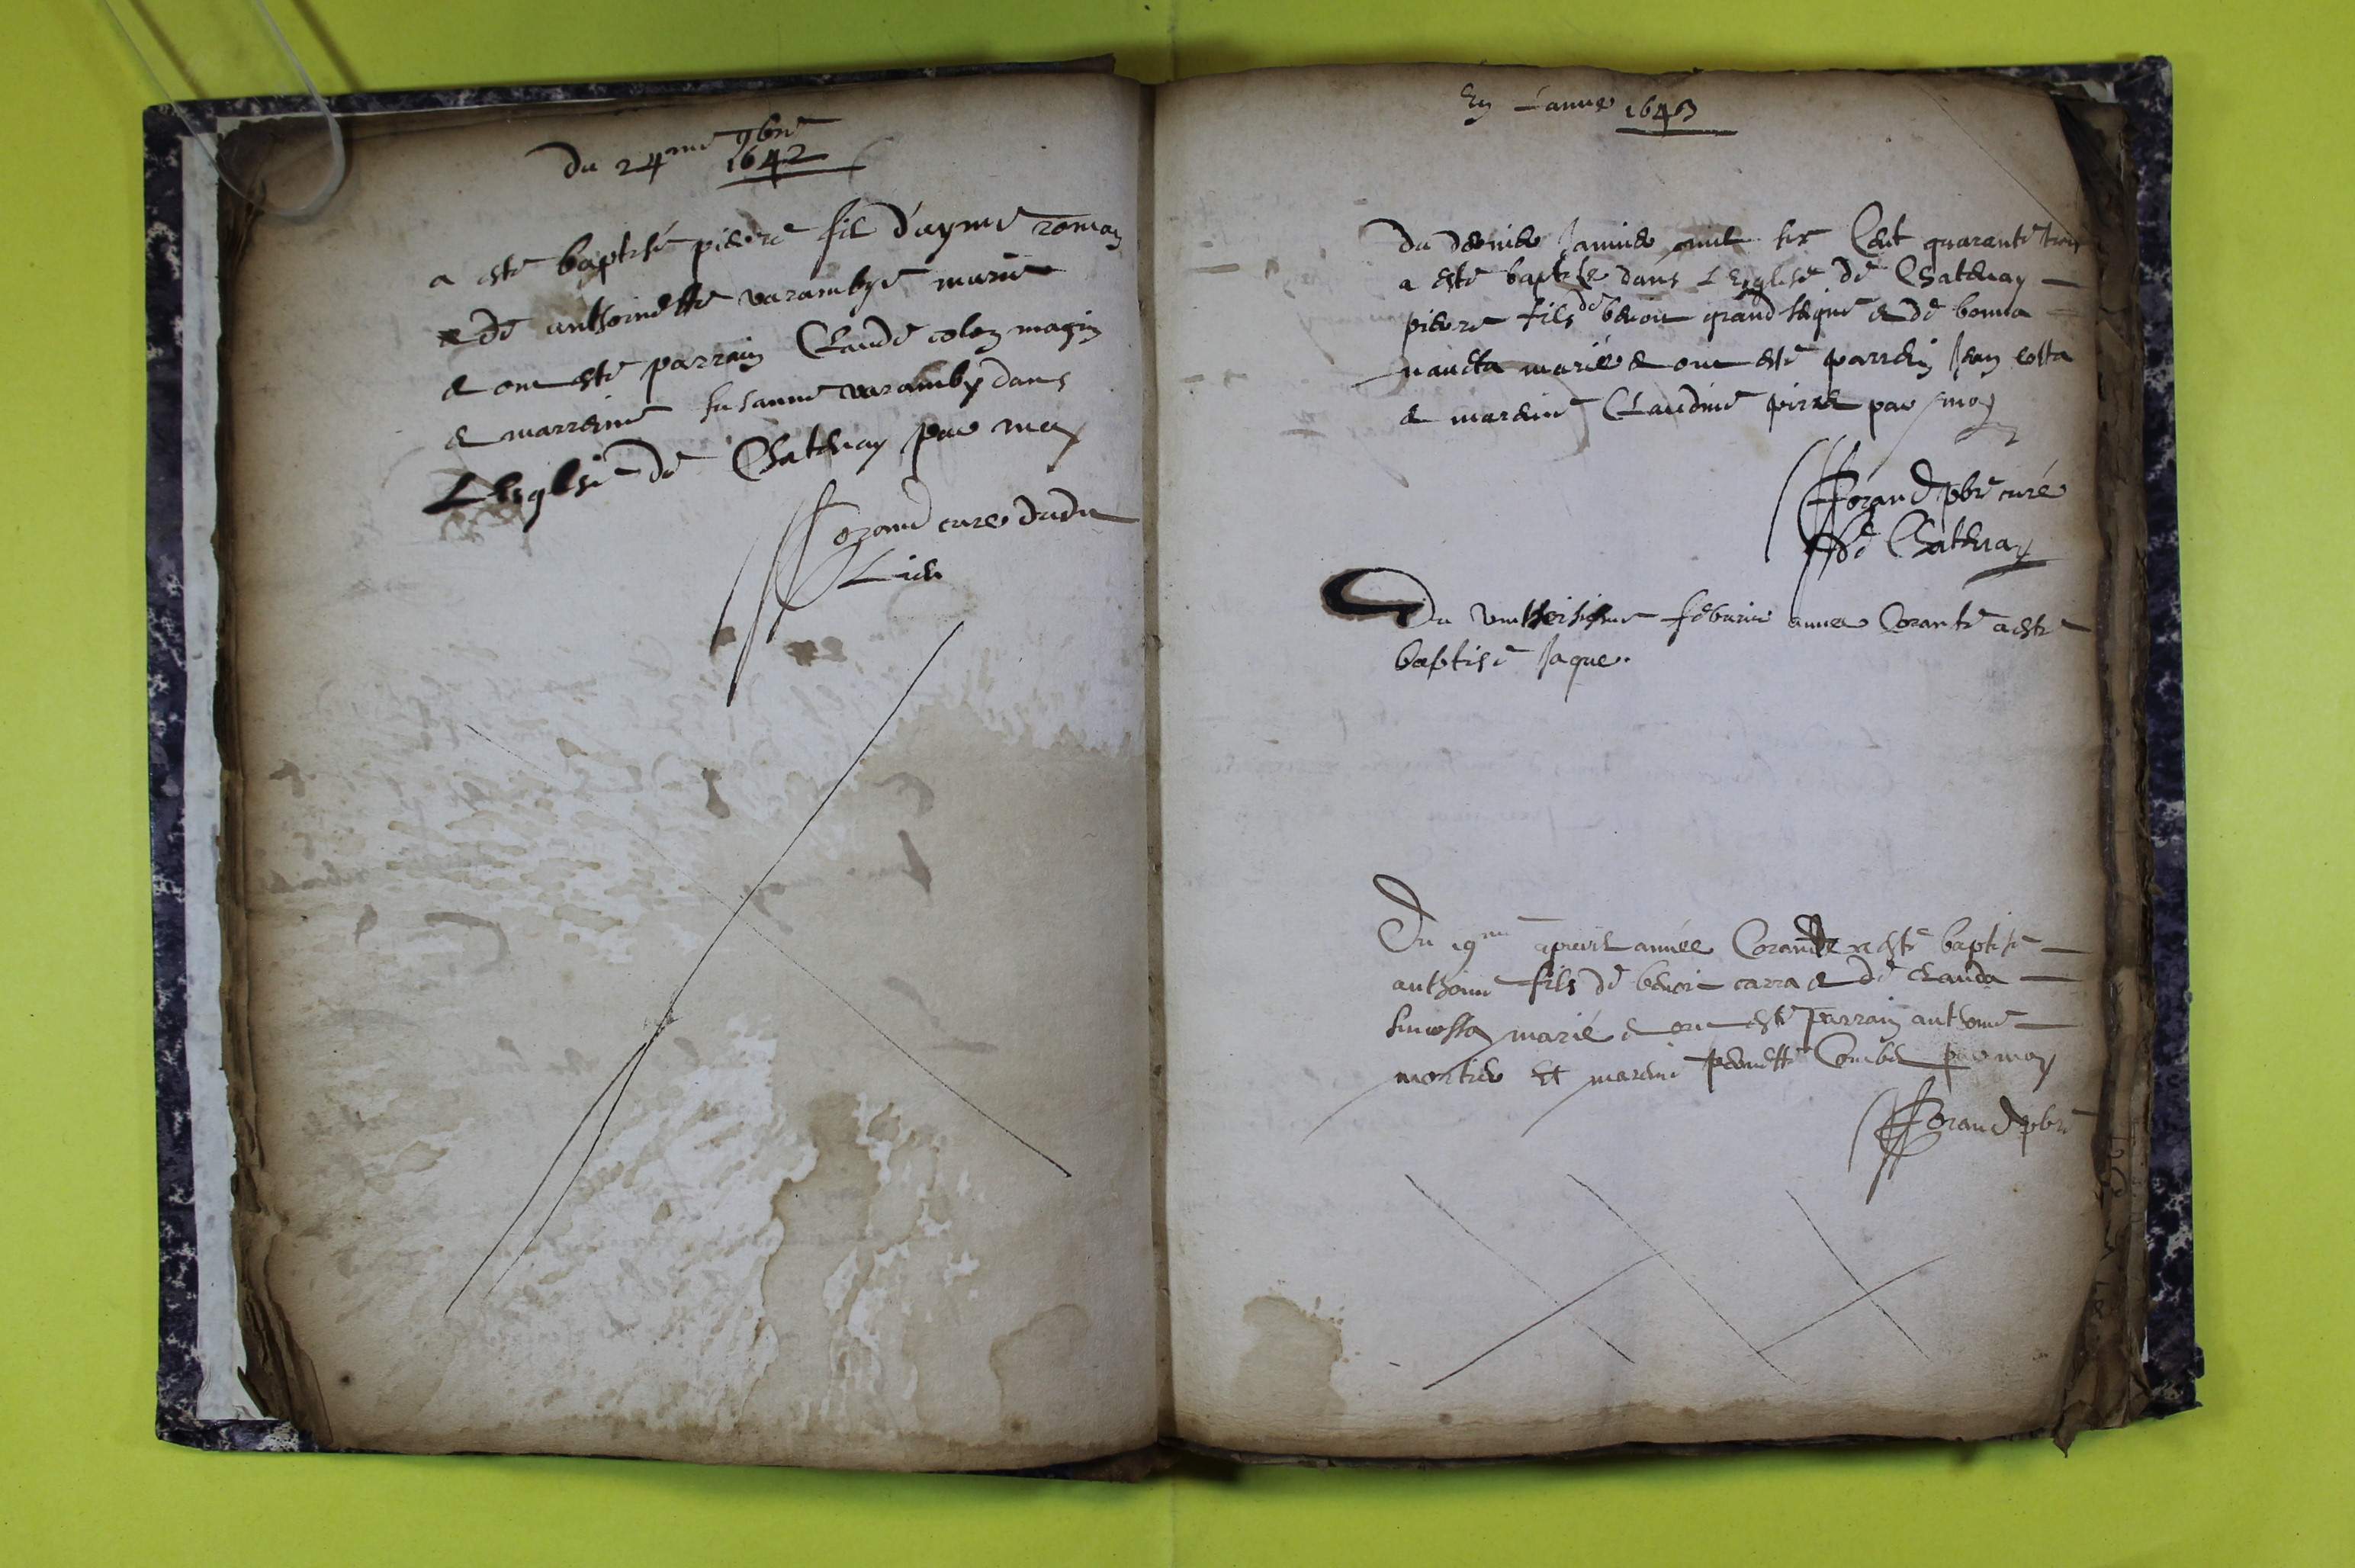 Du 24me 9bre
1642
a esté baptisé pierre fil d'ayme roman
e de anthoinette varambye mariés
e ont esté parrain Claude colon magin
e marreine susanne varamby dans
L'Esglise de Chatenay par moy
forand curé dudit
Lieu
En L'annee 1643
Du dernier Janvier mil six Cent quarante trois
a esté baptisé dans L'Eglise de Chatenay
pierre fils de benoit grand e de bonna
marié e ont esté parrein Jean costa
e mareine Claudine pirat par moy
forand pbre curé
de Chatenay
Du feburier annee Corante a esté
baptisé Jaque.
Du 19me apvril année Corante a esté baptisé
anthoine fils de benoit carra e de Clauda
marié e ont esté parrain anthoine
mortier Et mareine pernette Combet par moy
forand pbre